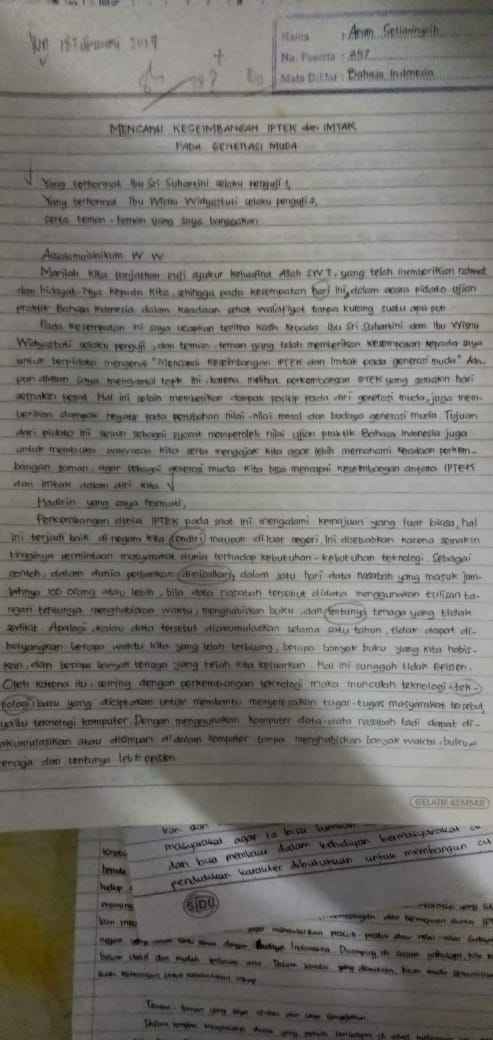 18 Februari 2019
Nama : Arum Setianingsih
No. Peserta : 297
Mata Diklat : Bahasa Indonesia
MENCAPAI KESEIMBANGAN IPTEK dan IMTAK
PADA GENERASI MUDA
Yang terhormat Ibu Sri Suhartini selaku penguji 1,
Yang terhormat Ibu Wisnu Widyastuti selaku penguji 2,
serta teman-teman yang saya banggakan
Assalamualaikum W W
Marilah kita panjatkan puji syukur kehadirat Allah SWT, yang telah memberikan rahmat
dan hidayah-Nya kepada kita, sehingga pada kesempatan hari ini, dalam acara pidato ujian
praktik Bahasa Indonesia dalam keadaan sehat walafiyat tanpa kurang suatu apa pun
Pada kesempatan ini saya ucapkan terima kasih kepada Ibu Sri Suhartini dan Ibu Wisnu
Widyastuti selaku penguji, dan teman-teman yang telah memberikan kesempatan kepada saya
untuk berpidato mengenai "Mencapai Keseimbangan IPTEK dan Imtak pada generasi muda" Ada-
pun alasan saya mengambil topik ini, karena melihat perkembangan IPTEK yang semakin hari
semakin pesat. Hal ini selain memberikan dampak positip pada diri generasi muda, juga mem-
berikan dampak negatif pada perubahan nilai-nilai moral dan budaya generasi muda Tujuan
dari pidato ini selain sebagai syarat memperoleh nilai ujian praktik Bahasa Indonesia juga
untuk membuka wawasan kita serta mengajak kita agar lebih memahami keadaan perkem-
bangan zaman, agar sebagai generasi muda kita bisa mencapai keseimbangan antara IPTEK
dan Imtak dalam diri kita.
Hadirin yang saya hormati,
Perkembangan dunia IPTEK pada saat ini mengalami kemajuan yang luar biasa, hal
ini terjadi baik di negara kita sendiri maupun di luar negeri. Ini disebabkan karena semakin
tingginya permintaan masyarakat dunia terhadap kebutuhan-kebutuhan teknologi. Sebagai
contoh, dalam dunia perbankan dimisalkan, dalam satu hari data nasabah yang masuk jum-
lahnya 100 orang atau lebih, bila data nasabah tersebut didata menggunakan tulisan ta-
ngan tentunya menghabiskan waktu, menghabiskan buku, dan tentunya tenaga yang tidak
sedikit. Apalagi, kalau data tersebut diakumulasikan selama satu tahun, tidak dapat di-
bayangkan berapa waktu kita yang telah terbuang, berapa banyak buku yang kita habis-
kan, dan berapa banyak tenaga yang telah kita keluarkan. Hal ini sungguh tidak efisien.
Oleh karena itu, seiring dengan perkembangan teknologi maka munculah teknologi-tek-
nologi baru yang diciptakan untuk membantu menyelesaikan tugas-tugas masyarakat tersebut,
yaitu teknologi komputer. Dengan menggunakan komputer data-data nasabah tadi dapat di-
akumulasikan atau disimpan di dalam komputer tanpa menghabiskan banyak waktu, buku,
tenaga dan tentunya lebih efisien
GELATIK KEMBAR
masyarakat agar ia bisa tumbuh
dan bisa membaur dalam kehidupan bermasyarakat
pendidikan karakter dibutuhkan untuk membangun
SIDU